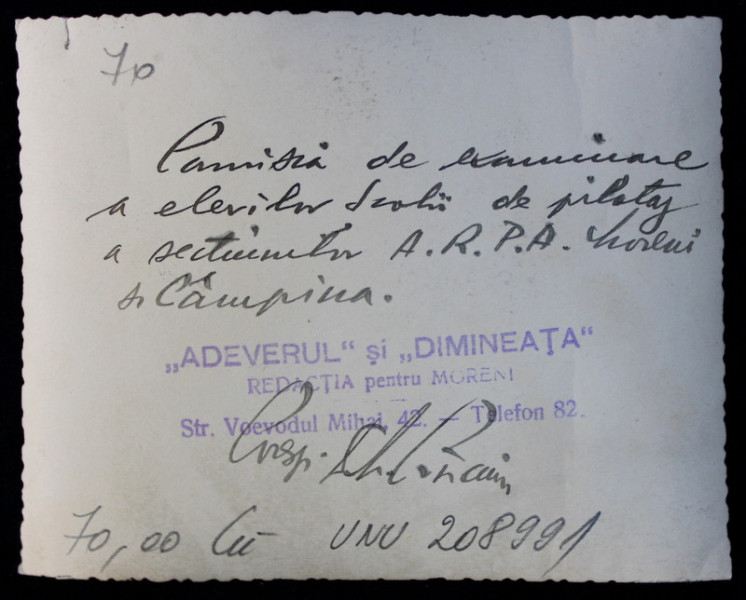 70
Comisia de examinare
a elevilor Școlii de pilotaj
a secțiunilor A.R.P.A. Moreni
și Câmpina.
„ADEVERUL“ și „DIMINEAȚA“
REDACȚIA pentru MORENI
Str. Voevodul Mihai, 42. — Telefon 82.
Coresp.
70,00 Lei UNU 208991